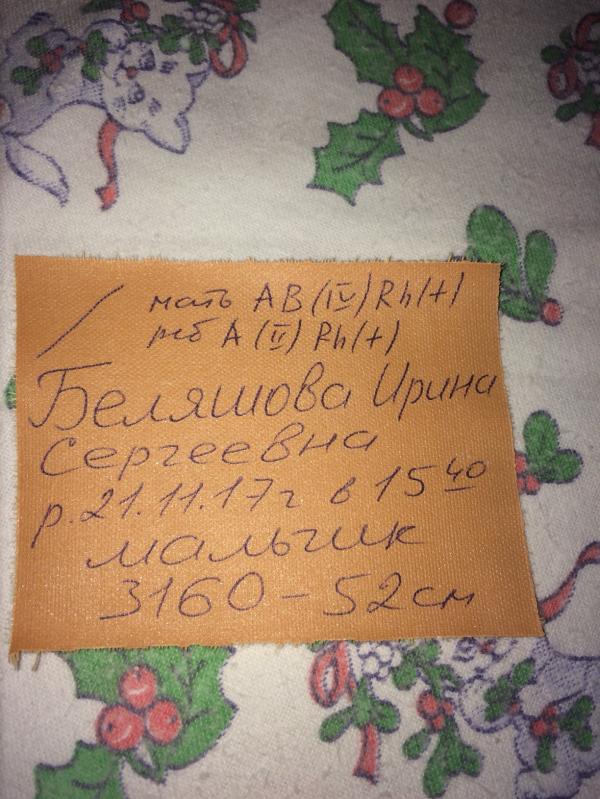 мать AB (IV) Rh(+)
реб A (II) Rh(+)
Беляшова Ирина
Сергеевна
р. 21.11.17г в 15 40
мальчик
3160 – 52 см